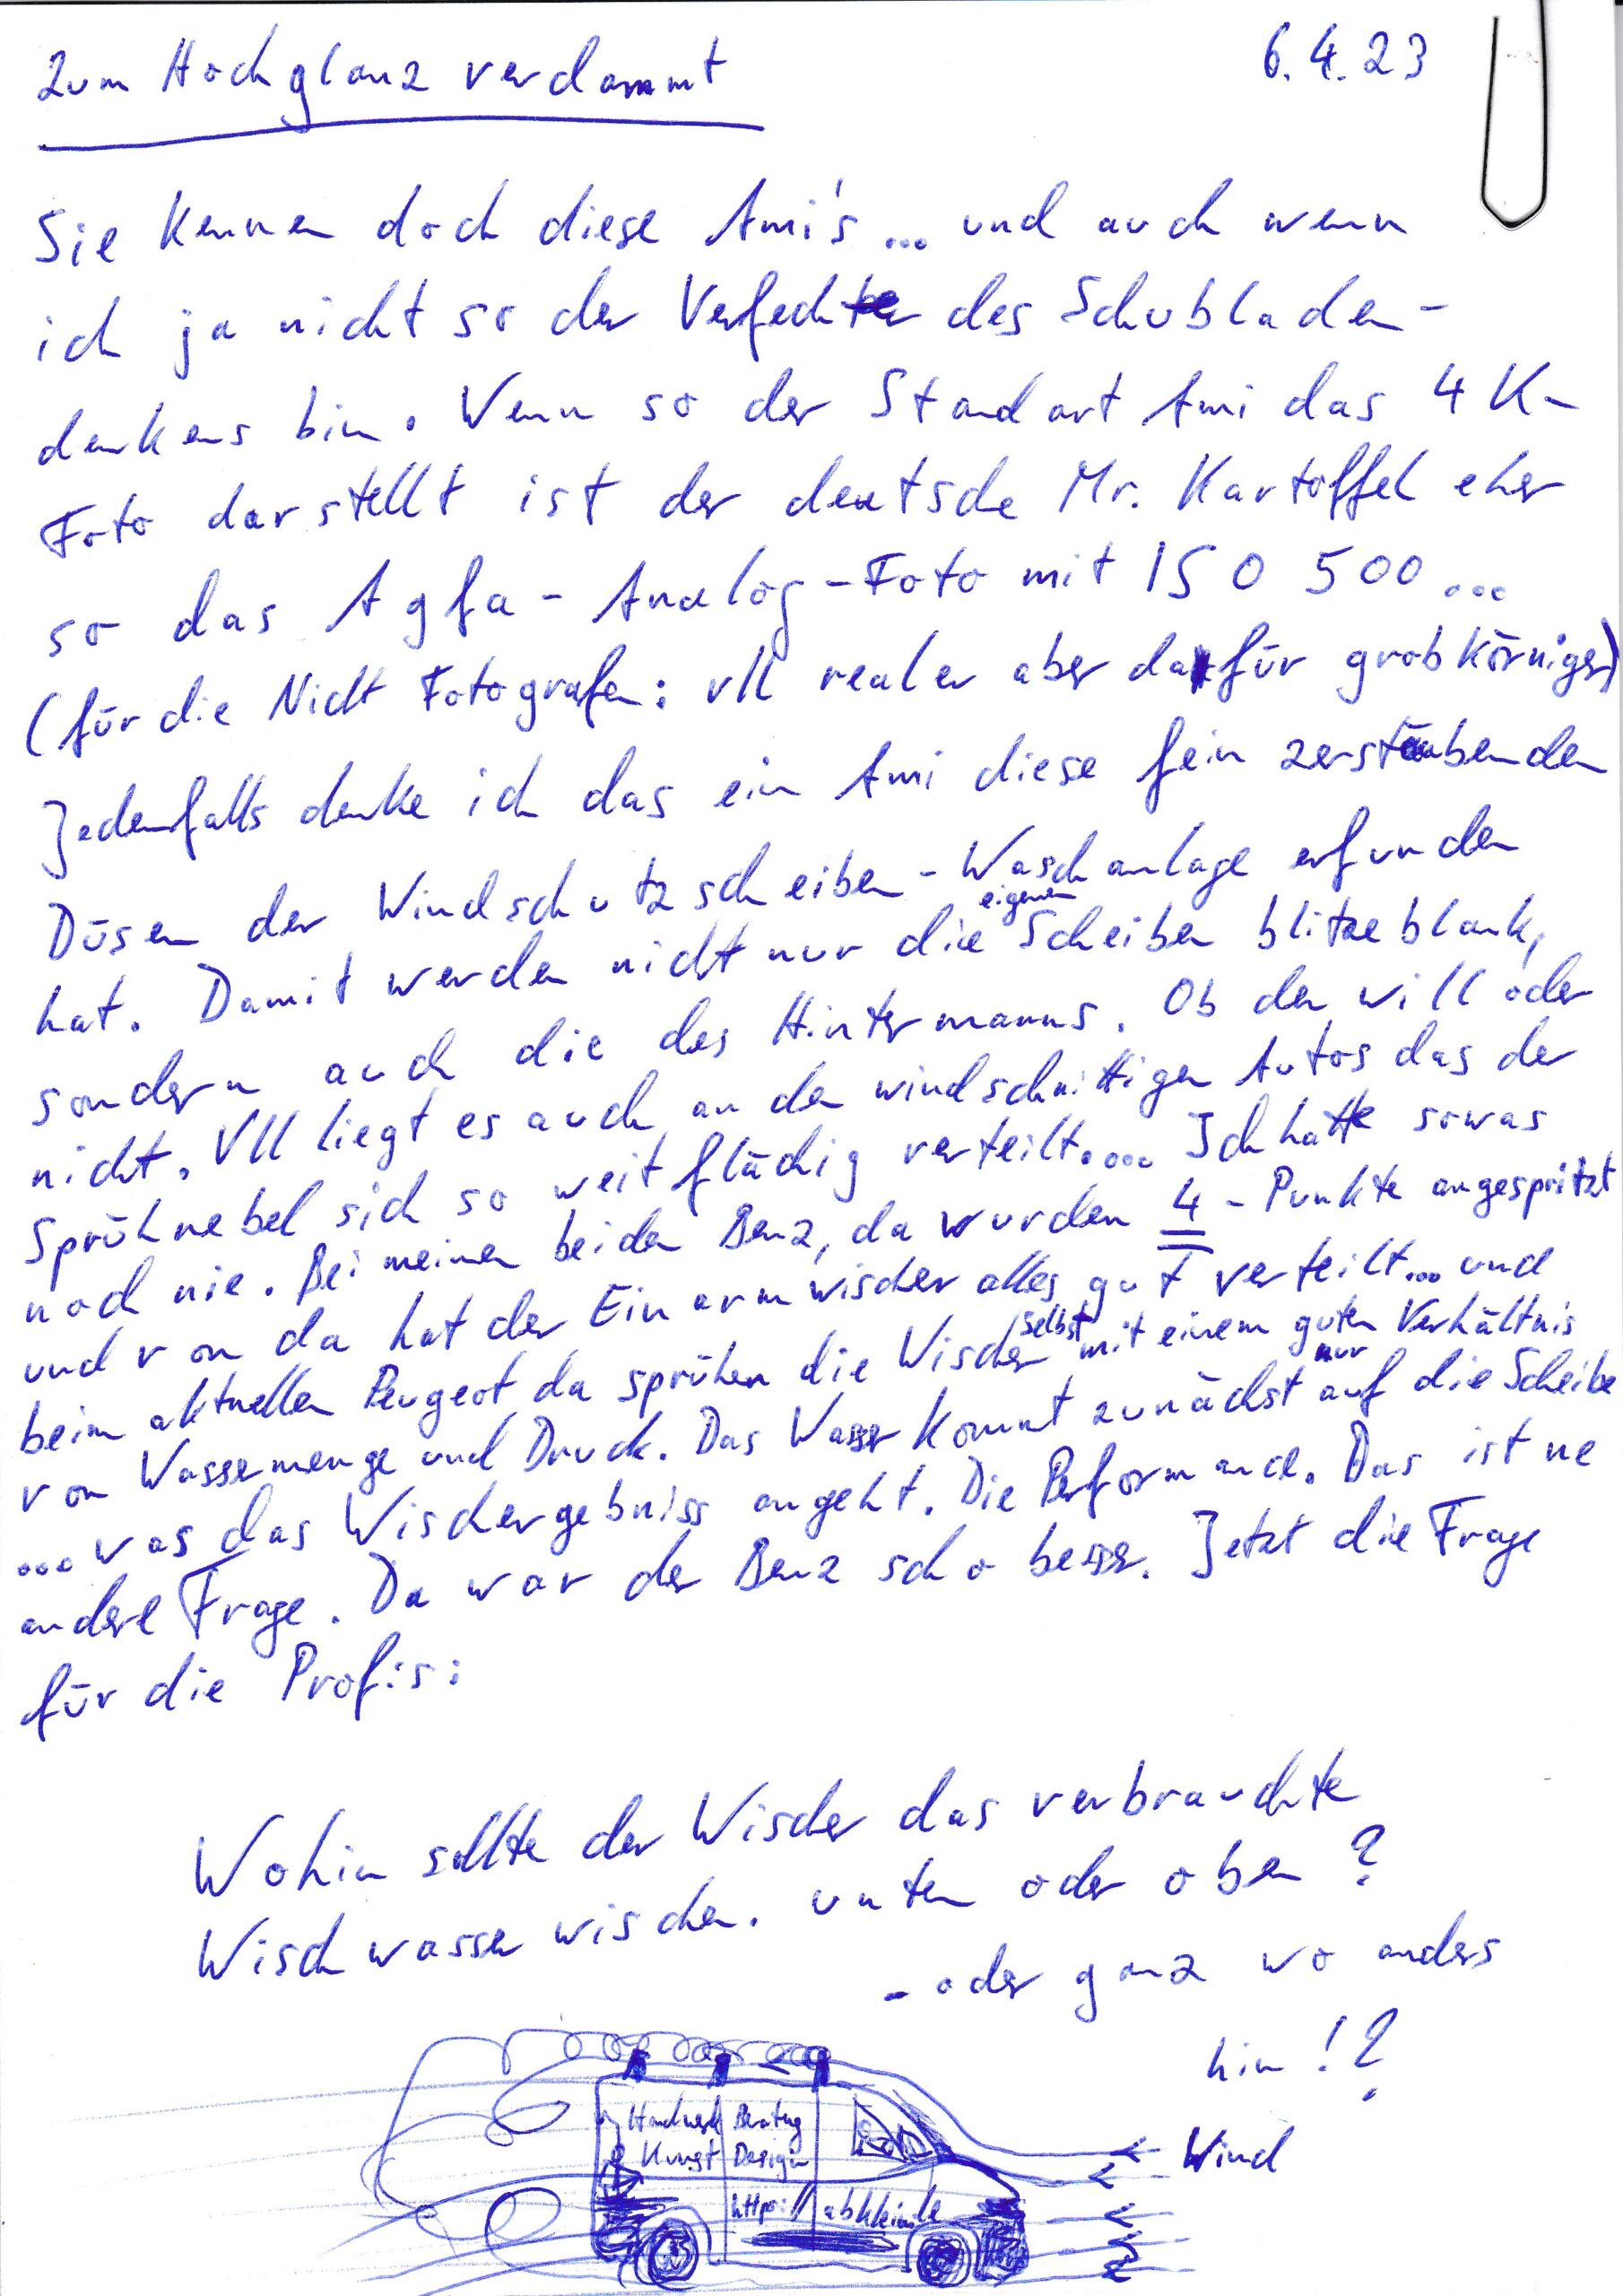 Zum Hochglanz verdammt
6.4.23
Sie kennen doch diese Ami's ... und auch wenn
ich ja nicht so der Verfechter des Schubladen-
denkens bin. Wenn so der Standart Ami das 4K-
Foto darstellt ist der deutsche Mr. Kartoffel eher
so das Agfa-Analog-Foto mit ISO 500 ...
(für die Nicht Fotografen: vll realer aber dafür grobkörniger)
Jedenfalls denke ich das ein Ami diese fein zerstäubenden
Düsen der Windschutzscheiben-Waschanlage erfunden
hat. Damit werden nicht nur die eigenen Scheiben blitzeblank,
sondern auch die des Hintermanns. Ob der will oder
nicht. Vll liegt es auch an den windschnittigen Autos das der
Sprühnebel sich so weitflächig verteilt.... Ich hatte sowas
noch nie. Bei meinen beiden Benz, da wurden 4-Punkte angespritzt
und von da hat der Einarmwischer alles gut verteilt... und
beim aktuellen Peugeot da sprühen die Wischer selbst mit einem guten Verhältnis
von Wassermenge und Druck. Das Wasser kommt zunächst nur auf die Scheibe
... was das Wischergebniss angeht. Die Performance. Das ist ne
andere Frage. Da war der Benz scho besser. Jetzt die Frage
für die Profis:
Wohin sollte der Wischer das verbrauchte
Wischwasser wischen. unten oder oben?
- oder ganz wo anders
hin!?
Wind
Handwerk Beratung
Kunst Design
https://